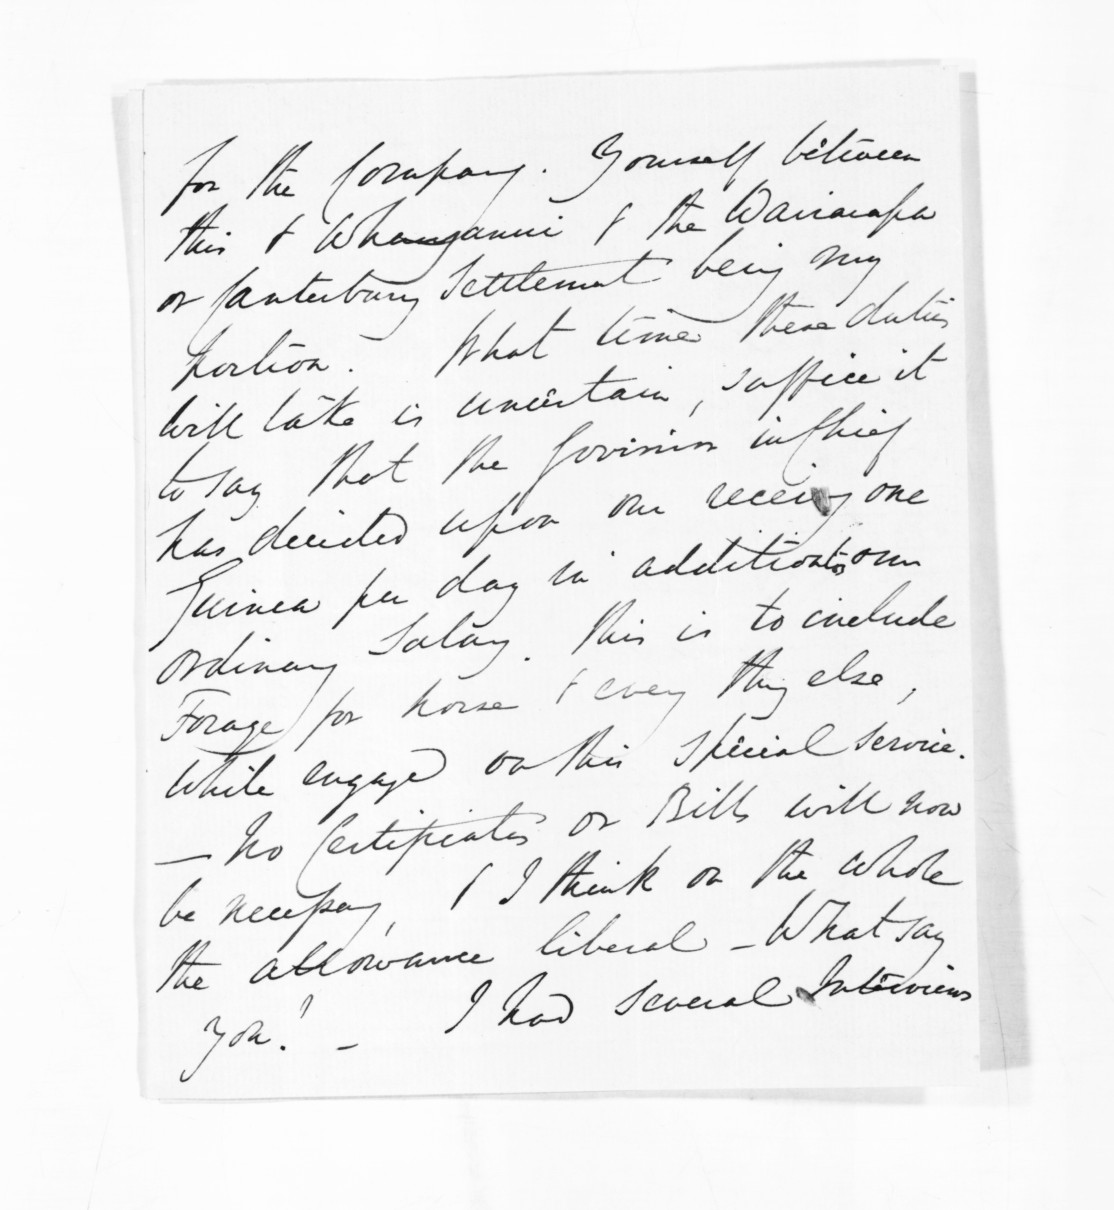 for the Company. Yourself between
this & Whanganui & the Wairarapa
or Canterbury Settlement being my
portion. What time these duties
will take is uncertain, suffice it
to say that the Governor in Chief
has decided upon our receivg one
Guinea per day in addition to our
ordinary Salary. This is to include
Forage for horse & every thing else,
while engaged on this special service.
— No Certificates or Bills will now
be necessary, & I think on the whole
the allowance liberal — What say
you! — I had several Interviews